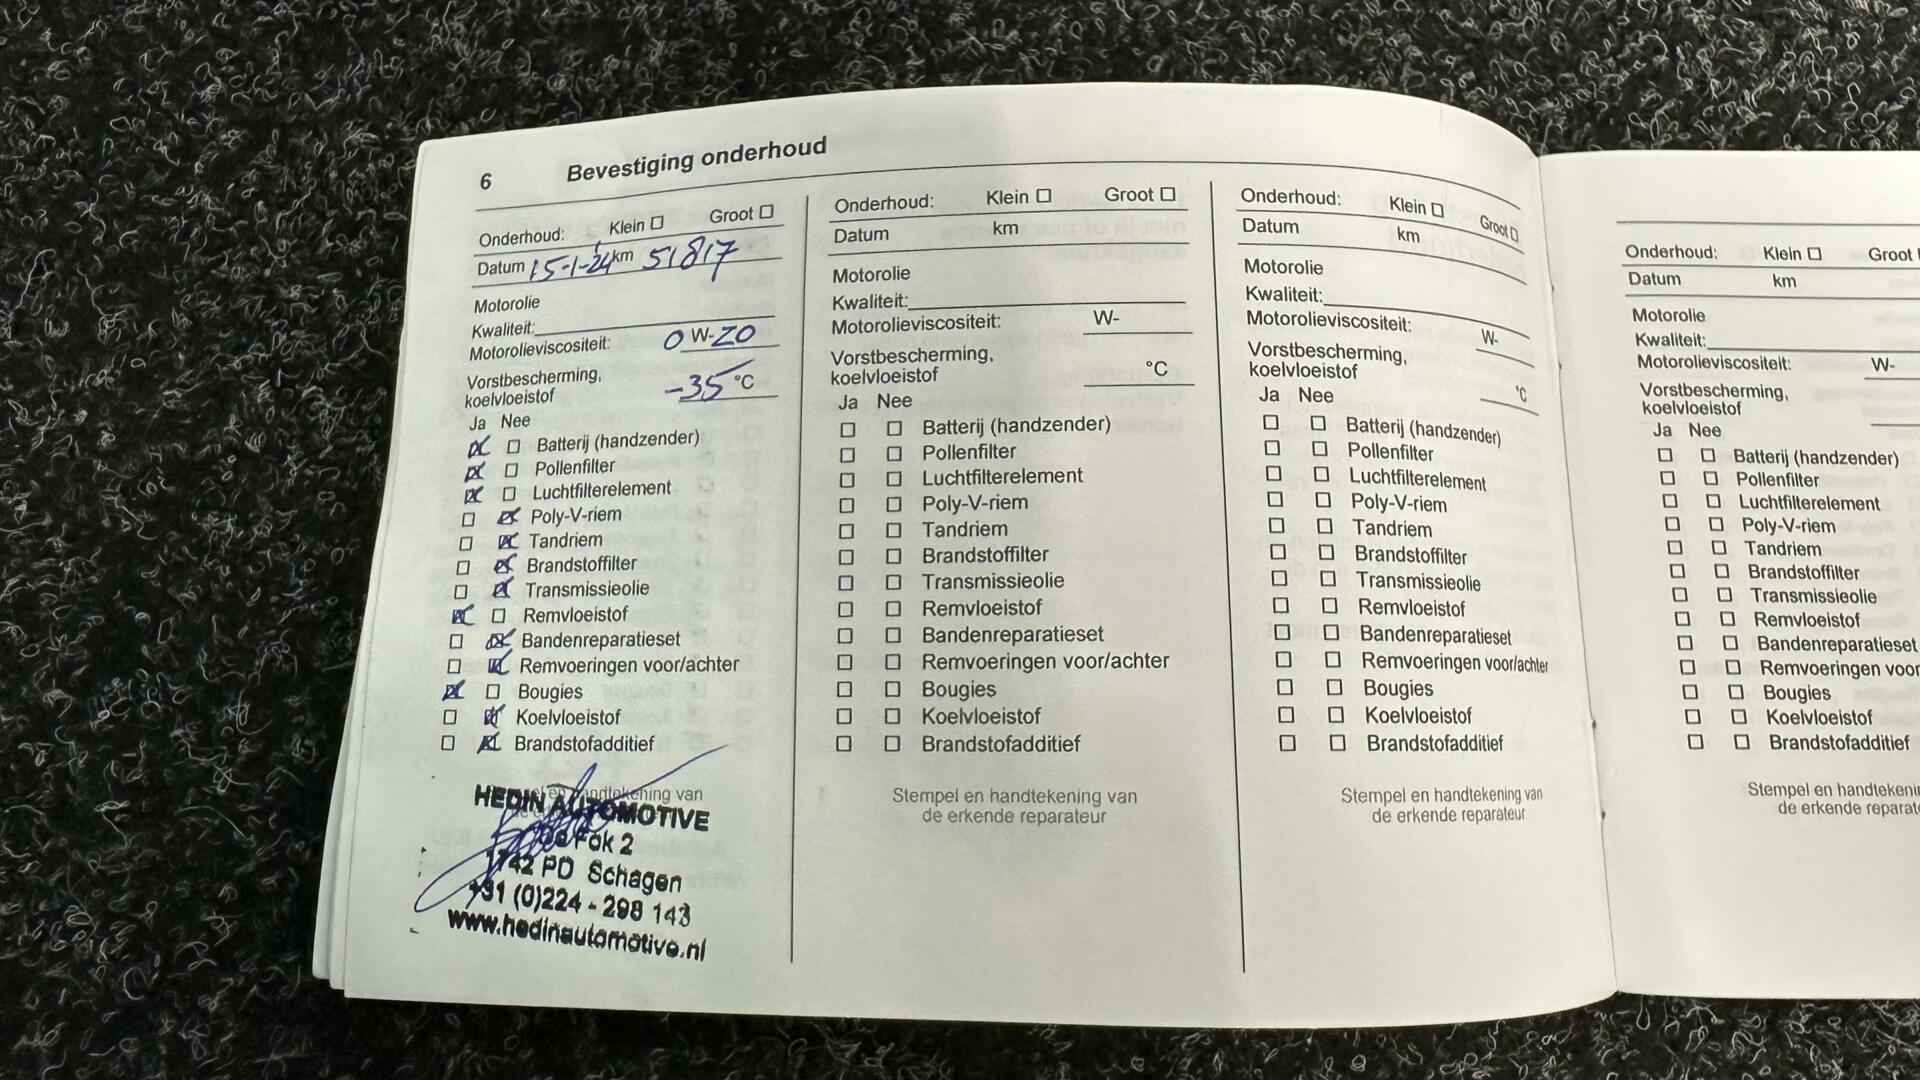 6 Bevestiging onderhoud
Onderhoud: Klein Groot
Datum 15-1-24 km 51817
Motorolie
Kwaliteit:
Motorolieviscositeit: 0 W-20
Vorstbescherming,
koelvloeistof -35 °C
Ja Nee
Batterij (handzender)
Pollenfilter
Luchtfilterelement
Poly-V-riem
Tandriem
Brandstoffilter
Transmissieolie
Remvloeistof
Bandenreparatieset
Remvoeringen voor/achter
Bougies
Koelvloeistof
Brandstofadditief
en handtekening van
HEDIN AUTOMOTIVE
Fok 2
1742 PD Schagen
+31 (0)224 - 298 143
www.hedinautomotive.nl
Onderhoud: Klein Groot
Datum km
Motorolie
Kwaliteit:
Motorolieviscositeit: W-
Vorstbescherming,
koelvloeistof °C
Ja Nee
Batterij (handzender)
Pollenfilter
Luchtfilterelement
Poly-V-riem
Tandriem
Brandstoffilter
Transmissieolie
Remvloeistof
Bandenreparatieset
Remvoeringen voor/achter
Bougies
Koelvloeistof
Brandstofadditief
Stempel en handtekening van
de erkende reparateur
Onderhoud: Klein Groot
Datum km
Motorolie
Kwaliteit:
Motorolieviscositeit: W-
Vorstbescherming,
koelvloeistof °C
Ja Nee
Batterij (handzender)
Pollenfilter
Luchtfilterelement
Poly-V-riem
Tandriem
Brandstoffilter
Transmissieolie
Remvloeistof
Bandenreparatieset
Remvoeringen voor/achter
Bougies
Koelvloeistof
Brandstofadditief
Stempel en handtekening van
de erkende reparateur
Onderhoud: Klein Groot
Datum km
Motorolie
Kwaliteit:
Motorolieviscositeit: W-
Vorstbescherming,
koelvloeistof
Ja Nee
Batterij (handzender)
Pollenfilter
Luchtfilterelement
Poly-V-riem
Tandriem
Brandstoffilter
Transmissieolie
Remvloeistof
Bandenreparatieset
Remvoeringen voor
Bougies
Koelvloeistof
Brandstofadditief
Stempel en handtekenin
de erkende reparat